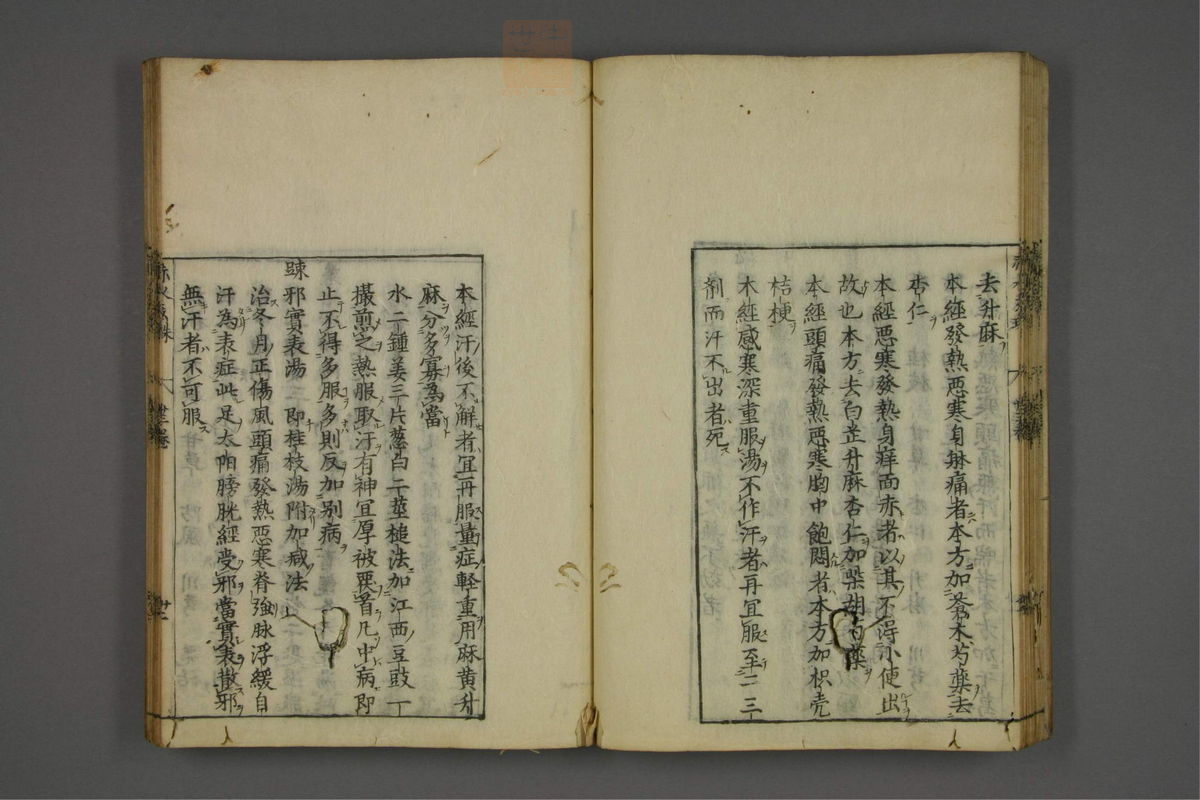 去升麻
本經發熱惡寒身躰痛者本方加蒼朮芍藥去
杏仁
本經惡寒發熱身痒面赤者以其不得小便出
故也本方去白芷升麻杏仁加柴胡芍藥
本經頭痛發熱惡寒胸中飽悶者本方加枳壳
桔梗
本經感寒深重服湯不作汗者再宜服至二三
劑而汗不出者死
本經汗後不解者宜再服量症輕重用麻黄升
麻分多寡為當
水二鍾姜三片葱白二莖槌法加江西豆豉一
撮煎之熱服取汗有神宜厚被覆首凡中病即
止不得多服多則反加别病
疎邪實表湯 即桂枝湯附加减法
治冬月正傷風頭痛發熱惡寒脊強脉浮緩自
汗為表症此足太陽膀胱經受邪當實表散邪
無汗者不可服